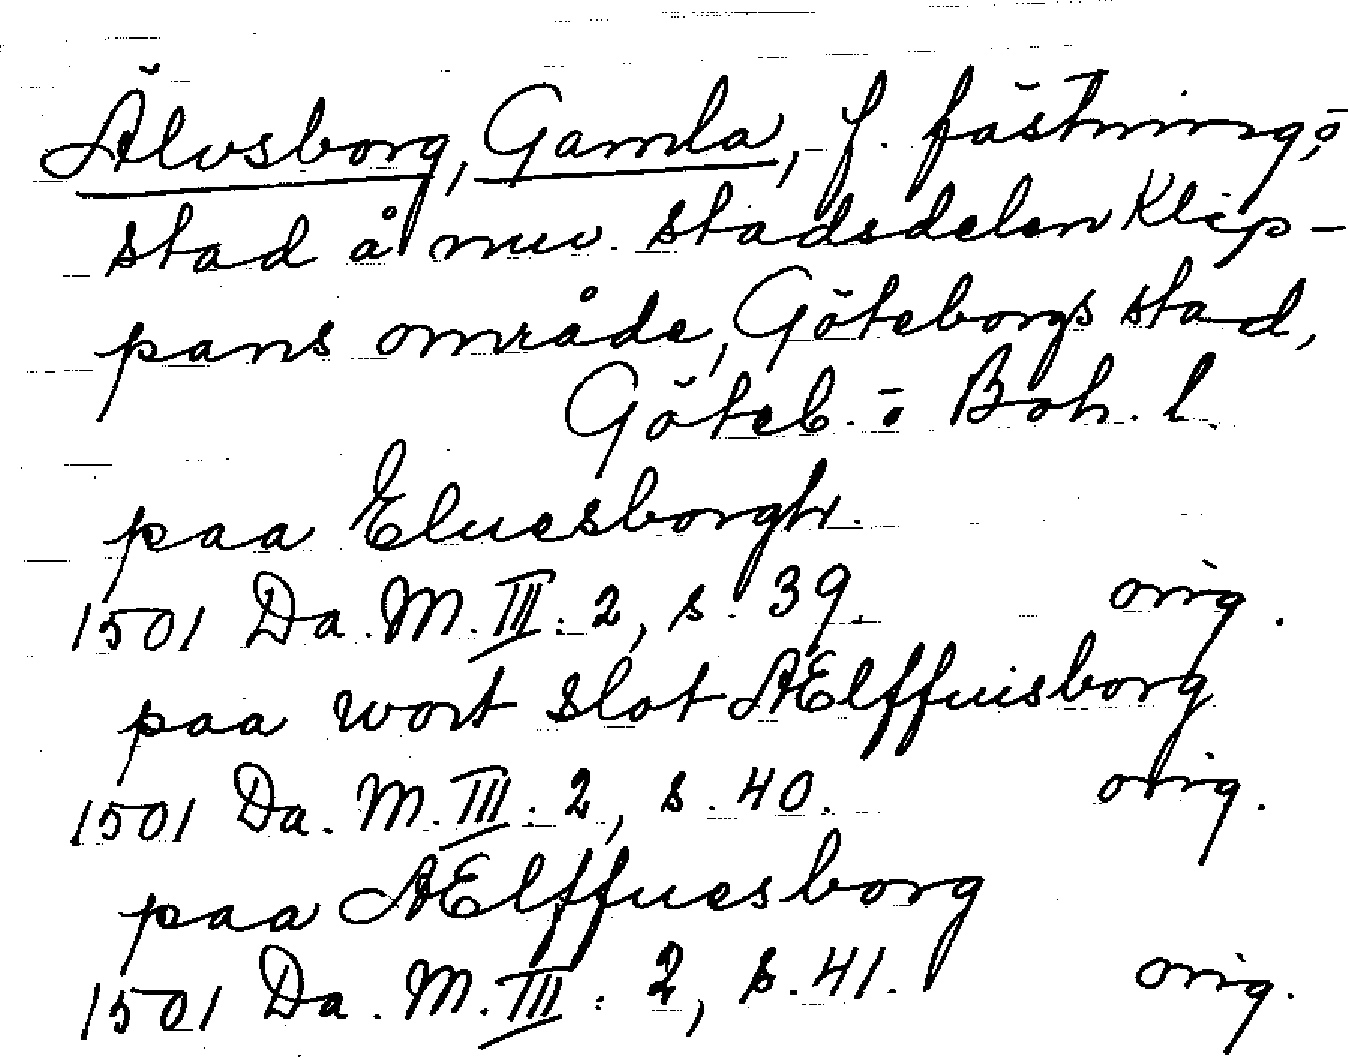 Älvsborg, Gamla, f. fästning, ö
stad å nuv. stadsdelen Klip-
pans område, Göteborgs stad,
Göteb. o. Boh. l.
paa Eluesborgh.
1501 Da. M. III. 2, s. 39. orig.
paa wort slot AElffuisborg
1501 Da. M. III. 2, s. 40. orig.
paa AElffuesborg
1501 Da. M. III. 2, s. 41. orig.